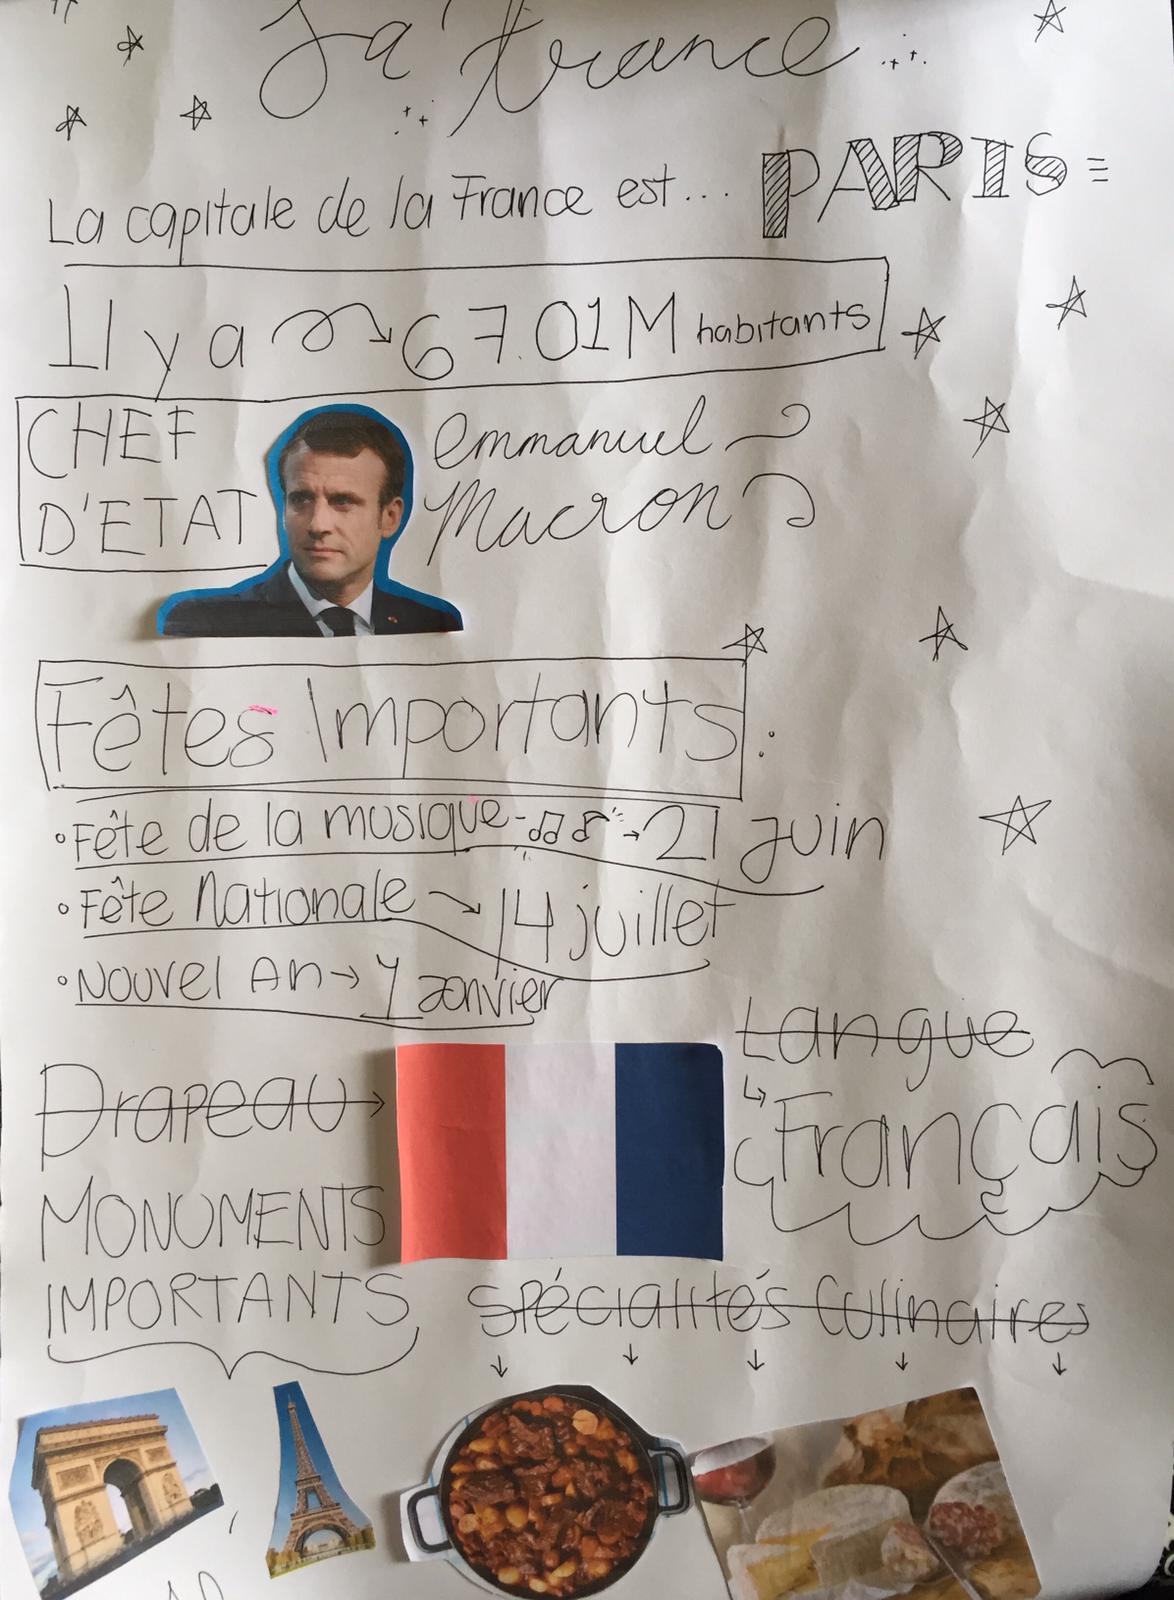 La France
La capitale de la France est... PARIS
Il y a → 67.01M habitants
CHEF
D'ETAT
Emmanuel
Macron
Fêtes Importants:
• Fête de la musique → 21 juin
• Fête Nationale → 14 juillet
• Nouvel An → 1 janvier
Langue
Drapeau →
Français
MONUMENTS
IMPORTANTS
Spécialités Culinaires